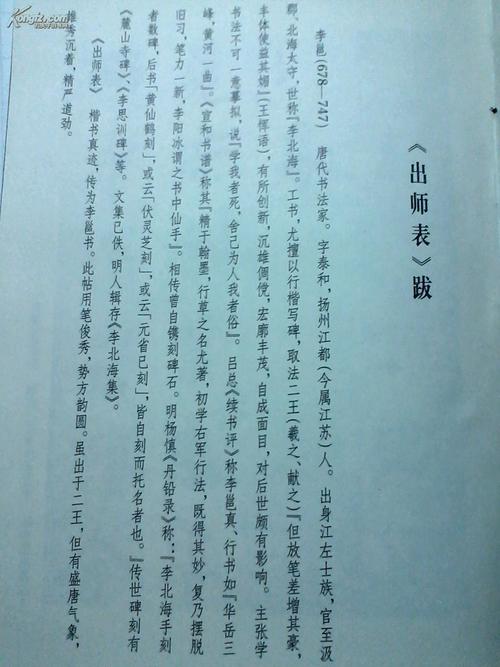 《出师表》跋
李邕（678—747） 唐代书法家。字泰和，扬州江都（今属江苏）人。出身江左士族，官至汲
郡、北海太守，世称『李北海』。工书，尤擅以行楷写碑，取法二王（羲之、献之）『但放笔差增其豪，
丰体使益其媚』（王恽语），有所创新，沉雄倜傥，宏廓丰茂，自成面目，对后世颇有影响。主张学
书法不可一意摹拟，说『学我者死，舍己为人我者俗』。吕总《续书评》称李邕真、行书如『华岳三
峰，黄河一曲』。《宣和书谱》称其『精于翰墨，行草之名尤著，初学右军行法，既得其妙，复乃摆脱
旧习，笔力一新，李阳冰谓之书中仙手』。相传曾自镌刻碑石。明杨慎《丹铅录》称：『李北海手刻
者数碑，后书「黄仙鹤刻」，或云「伏灵芝刻」，或云「元省己刻」，皆自刻而托名者也。』传世碑刻有
《麓山寺碑》、《李思训碑》等。文集已佚，明人辑存《李北海集》。
《出师表》 楷书真迹，传为李邕书。此帖用笔俊秀，势方韵圆。虽出于二王，但有盛唐气象，
雄秀沉着，精严遒劲。
Kongfz.com